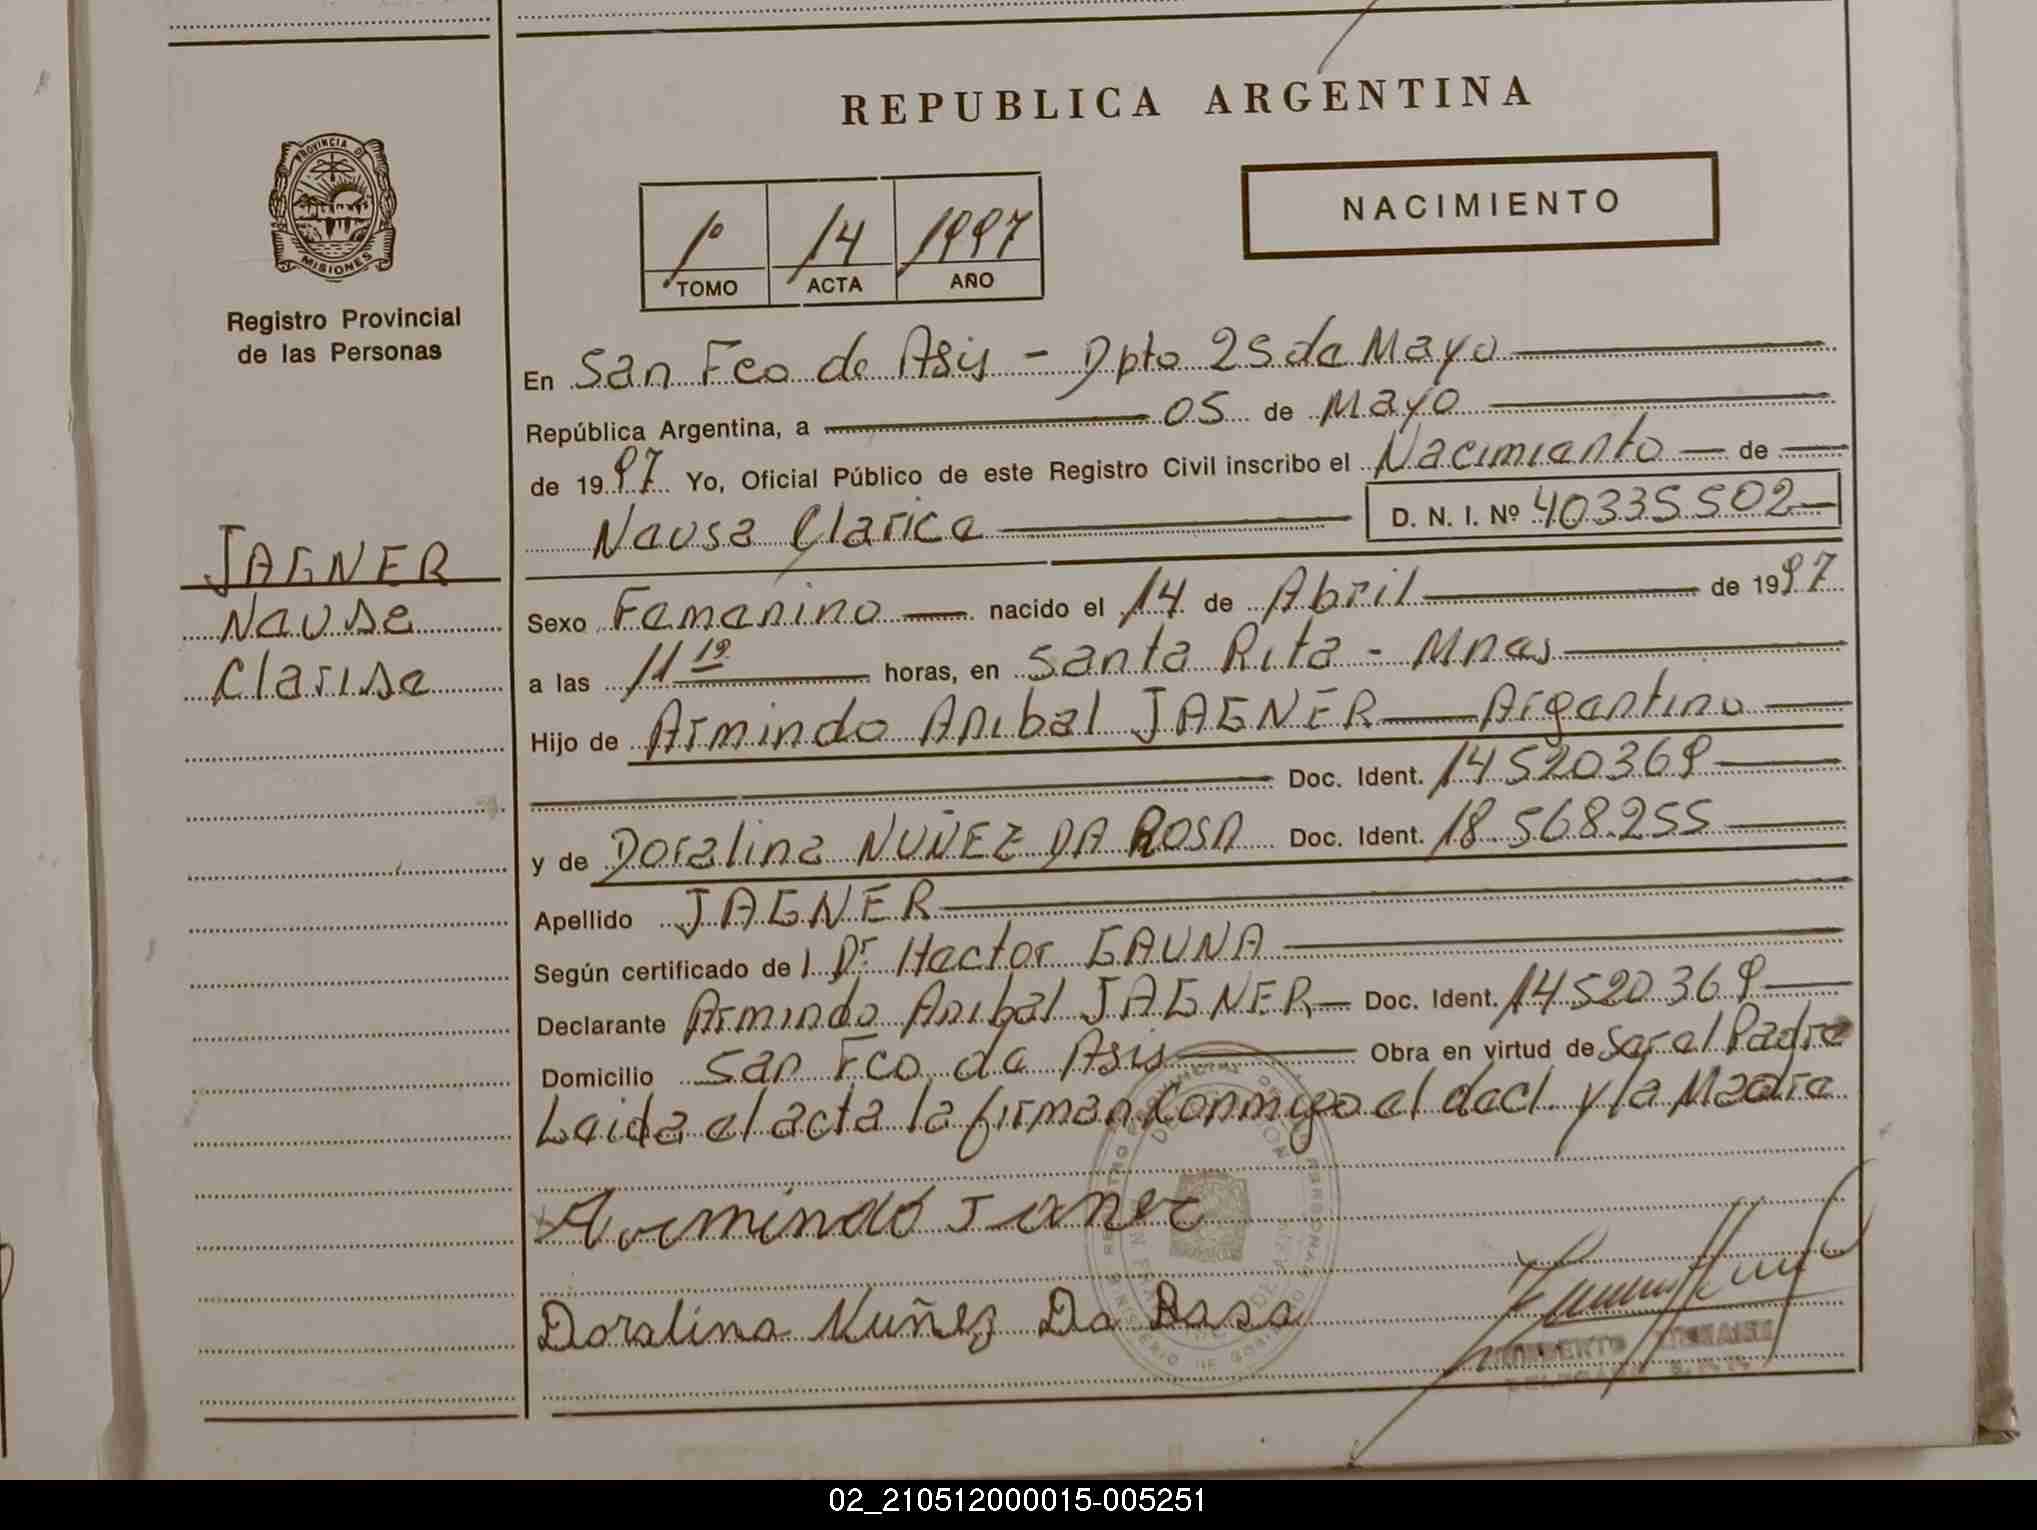 REPUBLICA ARGENTINA
PROVINCIA DE
MISIONES
Registro Provincial
de las Personas
1º 14 1997
TOMO ACTA AÑO
NACIMIENTO
JAGNER
Neuse
Clarise
En San Fco de Asis - Dpto 25 de Mayo
República Argentina, a 05 de Mayo
de 1997 Yo, Oficial Público de este Registro Civil inscribo el Nacimiento de
Neusa Clarice D. N. I. Nº 40335502
Sexo Femenino nacido el 14 de Abril de 1997
a las 11 10 horas, en Santa Rita - Mnes
Hijo de Armindo Anibal JAGNER Argentino
Doc. Ident. 14520369
y de Doralina NUÑEZ DA ROSA Doc. Ident. 18.568.255
Apellido JAGNER
Según certificado de l Dr Hector GAUNA
Declarante Armindo Anibal JAGNER Doc. Ident. 14520369
Domicilio San Fco de Asis Obra en virtud de Ser el Padre
Leida el acta la firman conmigo el decl. y la Madre
Armindo Janer
Doralina Nuñez Da Rasa
02_210512000015-005251